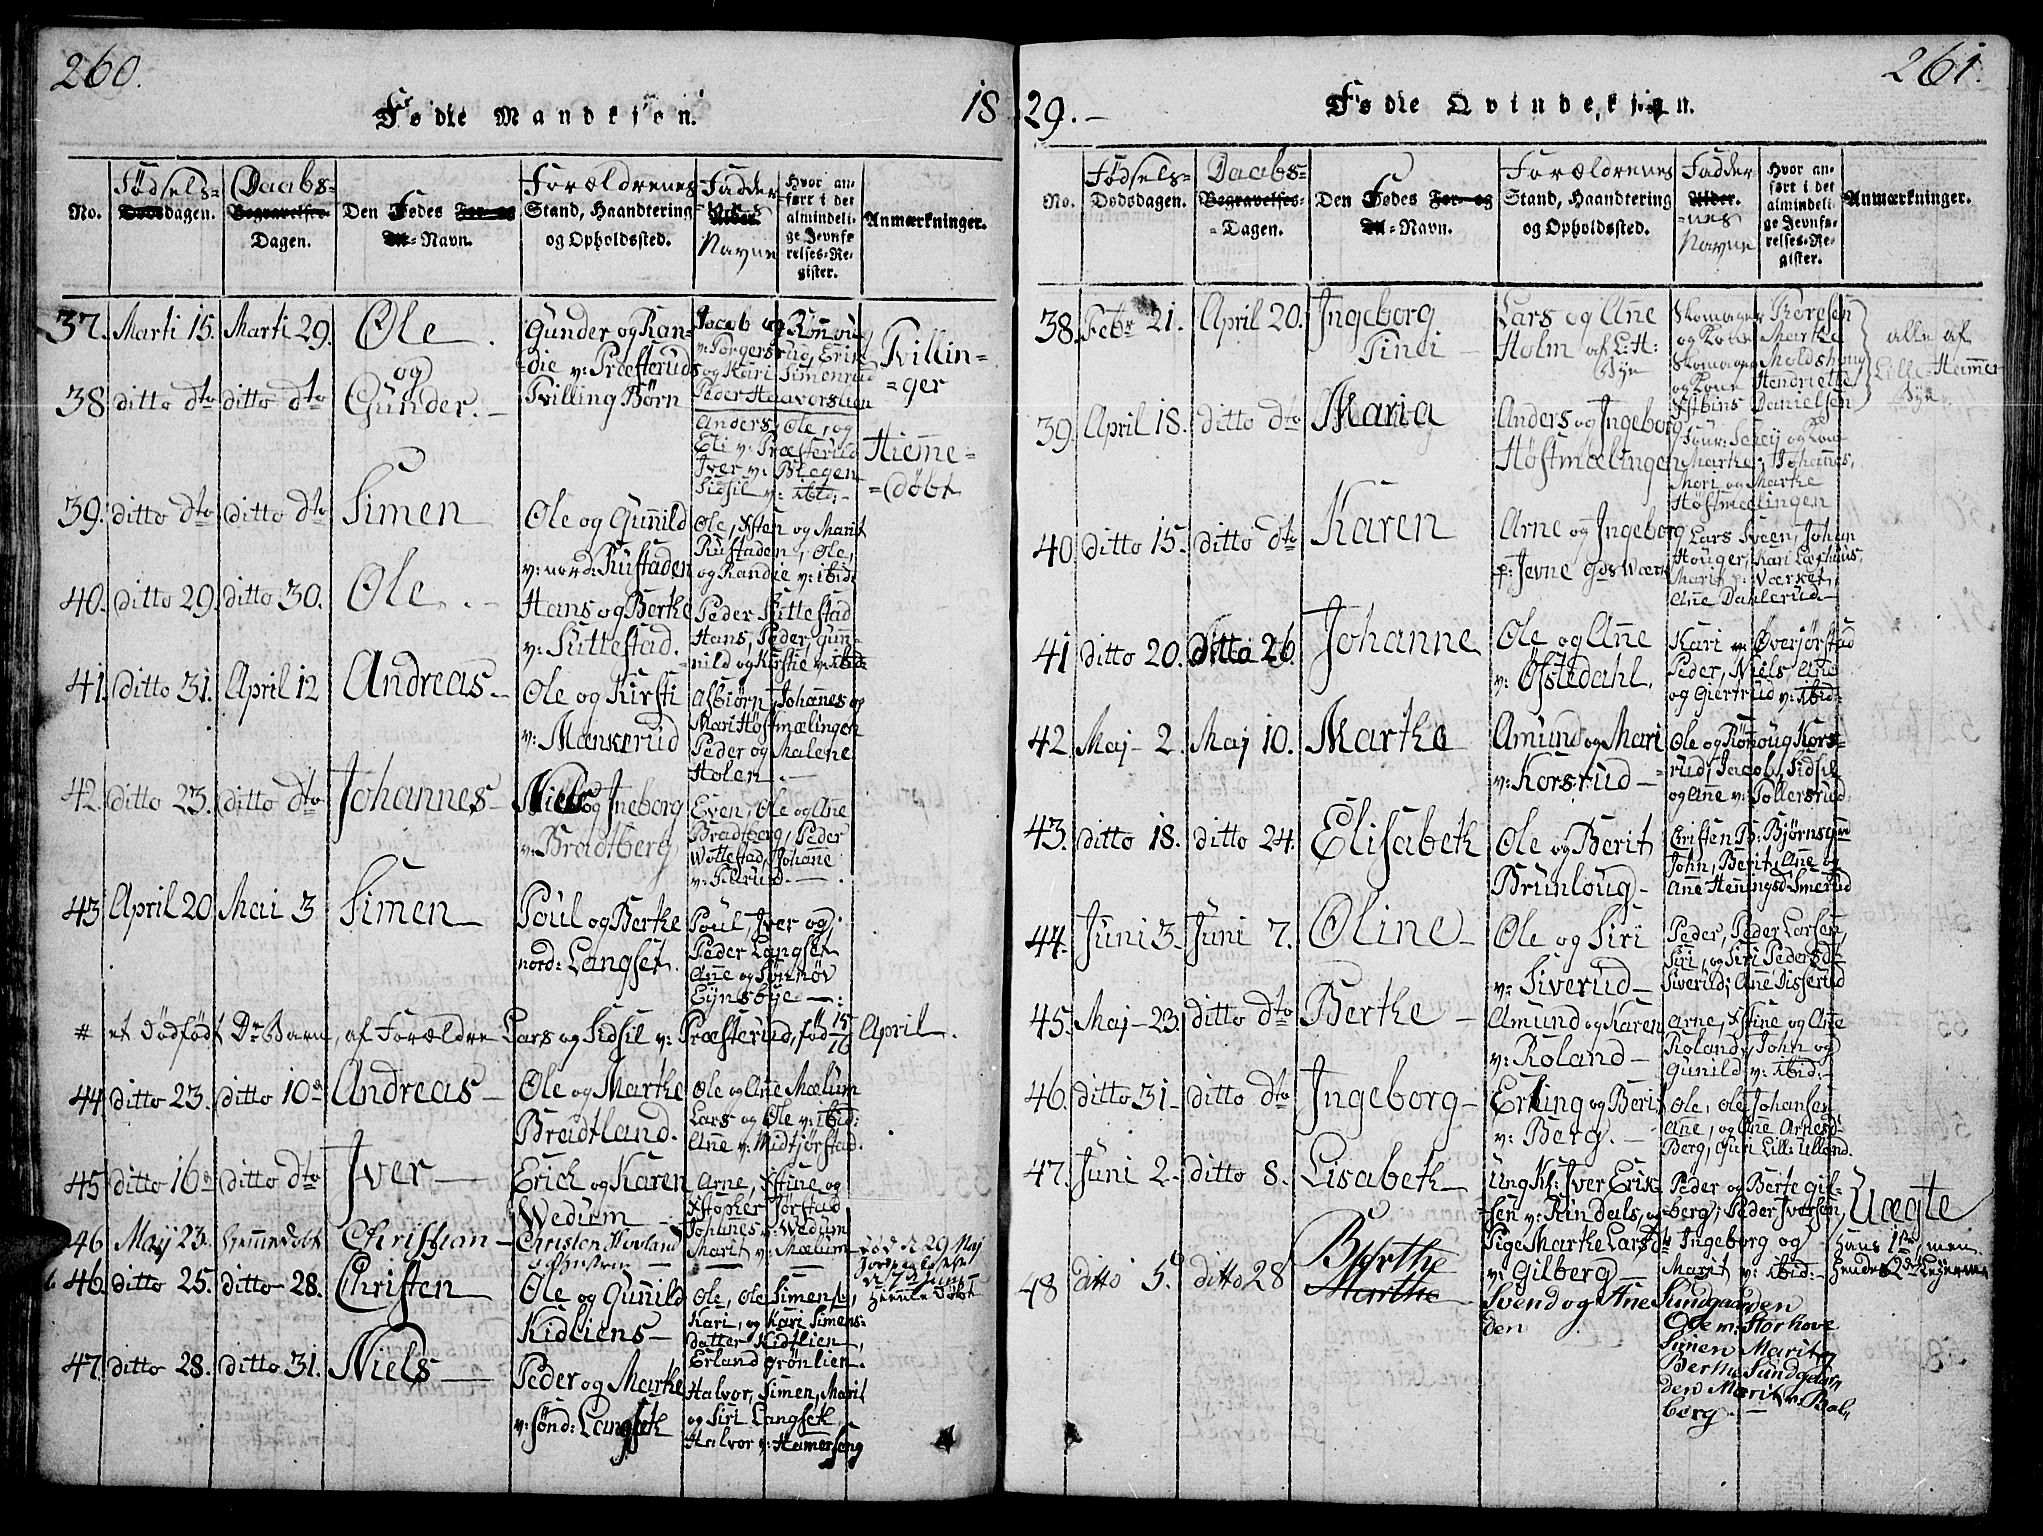 260.
Fødte Mandkjøn.
18
No.
Fødsels=
Dødsdagen.
Daabs=
Begravelses=
Dagen.
Den Fødes For- og
Til-Navn.
Forældrenes
Stand, Haandtering
og Opholdssted.
Fadder
Navne
Hvor an-
ført i det
almindeli-
ge Jevnfø-
relses-Re-
gister.
Anmærkninger.
37. Marti 15. Marti 29. Ole.
og
Gunder og Ran-
die v: Præsterud
Tvilling Børn
Jacob og Rønnou
v: Torgersrug, Erik
og Kari Simenrud
Peder Haavorslien
Tvillin-
=ger
38 ditto dto ditto dto Gunder. -
Anders, Ole, og
Eli v: Præsterud
Iver v: Blegen
Sidsil v: ibid: -
Hieme=
=døbt
39. ditto dto ditto dto Simen
Ole og Guñild
v: nord: Rustaden
Ole, Xsten og Marit
Rustaden, Ole,
og Randie v: ibid:
40. ditto 29. ditto 30. Ole. -
Hans og Berthe
v: Suttestad.
Peder Suttestad
Hans, Peder, Gun-
=nild og Kirstie v: ibid:
41. ditto 31. April 12 Andreas. -
Ole og Kirsti
v: Mænkerud
Asbiørn, Johañes og
Mari Høstmælingen
Peder og Malene
Holen. -
42. ditto 23. ditto dto Johannes -
Niels og Ingeborg
v: Bradtberg
Even, Ole og Ane
Bradtberg, Peder
Wollestad, Johañe
v: Pillrud. -
43 April 20. Mai 3 Simen -
Poul og Berthe
nord: Langset.
Poul, Iver og
Peder Langset
Añe og Synnøv
Eynsbye - :
# et Dødfødt Dr: Barn, af Forældre Lars og Sidsil v: Præsterud, fød 15/16 April.
44 ditto 23. ditto 10de Andreas -
Ole og Marthe
Bradtland.
Ole og Ane Mælum
Lars og Ole v: ibid:
Añe v: Midtjørstad.
45 ditto 16de ditto dto Iver -
Erich og Karen
Wedum -
Arne, Xstine og
Xstopher Jørstad
Johañes v: Wedum
Marit v: Mælum
46 Maji 23. hjemmedøbt Christian -
Christen Hovland
død d. 29 Maj
46. ditto 25. ditto 28. Christen
Ole og Guñild
Kidliens -
Ole, Ole Simens:
Kari, og Kari Simens:
datter Kidtlien,
Erland Grønlien.
47. ditto 28. ditto 31. Niels -
Peder og Marthe
v: sønd: Langseth
Halvor, Simen, Marit
og Siri Langseth
Halvor v: Hamerseng
261.
29. -
Fødte Qvindekjøn.
No.
Fødsels=
Dødsdagen.
Daabs=
Begravelses=
=Dagen.
Den Fødes For- og
Til-Navn.
Forældrenes
Stand, Haandtering
og Opholdssted.
Fadder
Alder.
=nes
Navne
Hvor an-
ført i det
almindeli-
ge Jevnfø-
relses-Re-
gister.
Anmærkninger.
38. Febr 21. April 20. Ingeborg
Sinei -
Lars og Añe
Holm af L: H:
Bye
Skomager
og Kone Marthe
Skomager Moldshoug
og Kone Hendriette
Xstbins Danielsen
alle af
Lille-Hammer
Bye.
39. April 18. ditto dto Maria
Anders og Ingeborg
Høstmælingen
Marthe, Johañes,
Mari og Marthe
Høstmælingen
40 ditto 15. ditto dto Karen
Arne og Ingeborg
p: Jevne Gds Værk
Lars Sveen, Johan
Houger, Kari
Marit p: Værket,
Añe Dahlerud -
41 ditto 20. ditto 26. Johanne
Ole og Añe
v: Østedahl.
Kari v: Øverjørstad
Peder, Niels, Añe
og Giertrud v: ibid:
42. Maj - 2. Maj 10. Marthe
Amund og Mari
v: Korsrud -
Ole og Rønnoug Kors-
=rud, Jacob, Sidsil
og Añe v: Tollersrud.
43. ditto 18. ditto 24. Elisabeth
Ole og Berit
Brunloug -
Cristen P: Bjørnsgrd
John, Berit, Ane og
Ane Henningsd Smerud
44. Juni 3. Juni 7. Oline -
Ole og Siri
v: Siverud -
Peder, Peder Larsen,
Siri, og Siri Pedersdr
Siverud; Añe Disserud
45. Maj - 23. ditto dto Berthe -
Amund og Karen
v: Roland -
Arne, Xstine og Ane
Roland, John og
Gunild v: ibid: -
46. ditto 31 - ditto dto Ingeborg -
Erling og Berit
v: Berg. -
Ole, Ole Johansen,
Ane, og Ane Arnesd:
Berg, Guri Lille Ulland.
47. Juni 2. ditto 8. Lisabeth -
Ung Kl: Iver Erik-
sen v: Rindals, og
Pige Marthe Larsd:
v: Gilberg -
Peder og Berte Gil-
berg; Peder Iversen,
Ingeborg og
Marit v: ibid: -
Uægte
hans 1ste men
hendes 2det Leyermaal
48 ditto 5. ditto 28 Byrthe
Marthe -
Svend og Ane Sundgaarden
den
Ole v: Storhove
Simen Marit og
Berthe Sundgaar,
den Marit v: Bal,
berg. -